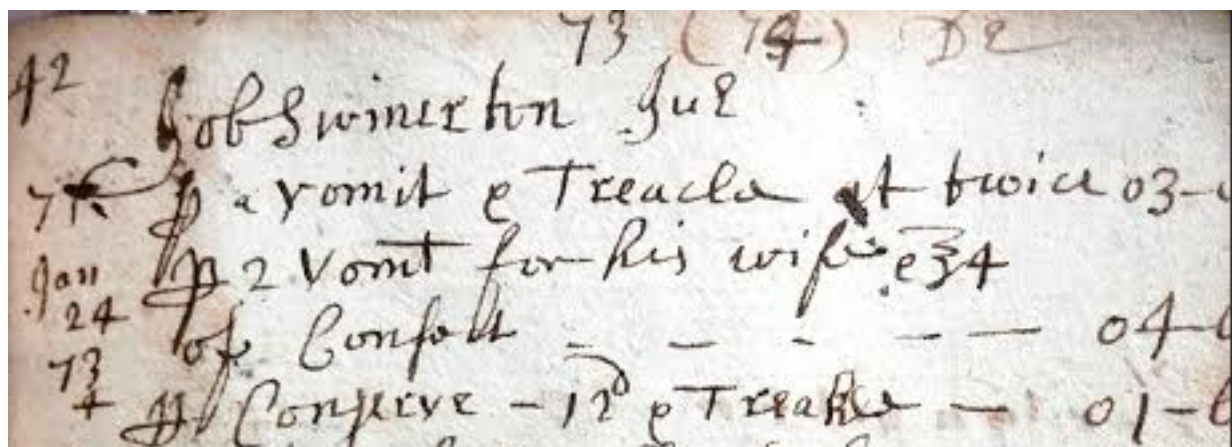 73 (74) De
42
Job Swinerton Jue
71 ꝑ a vomit e Treacle at twice 03-
Jan ꝑ 2 vomt for his wife e ʒ4
24 of Confect - - - - - 04-
73
4 ꝑ Conserve - 12d e Treakle - 01-